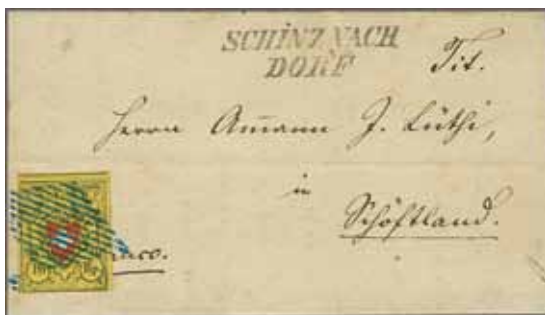 SCHINZNACH
DORF
Tit.
Herrn Am̄ann J. Lüthi,
in
Schöftland.